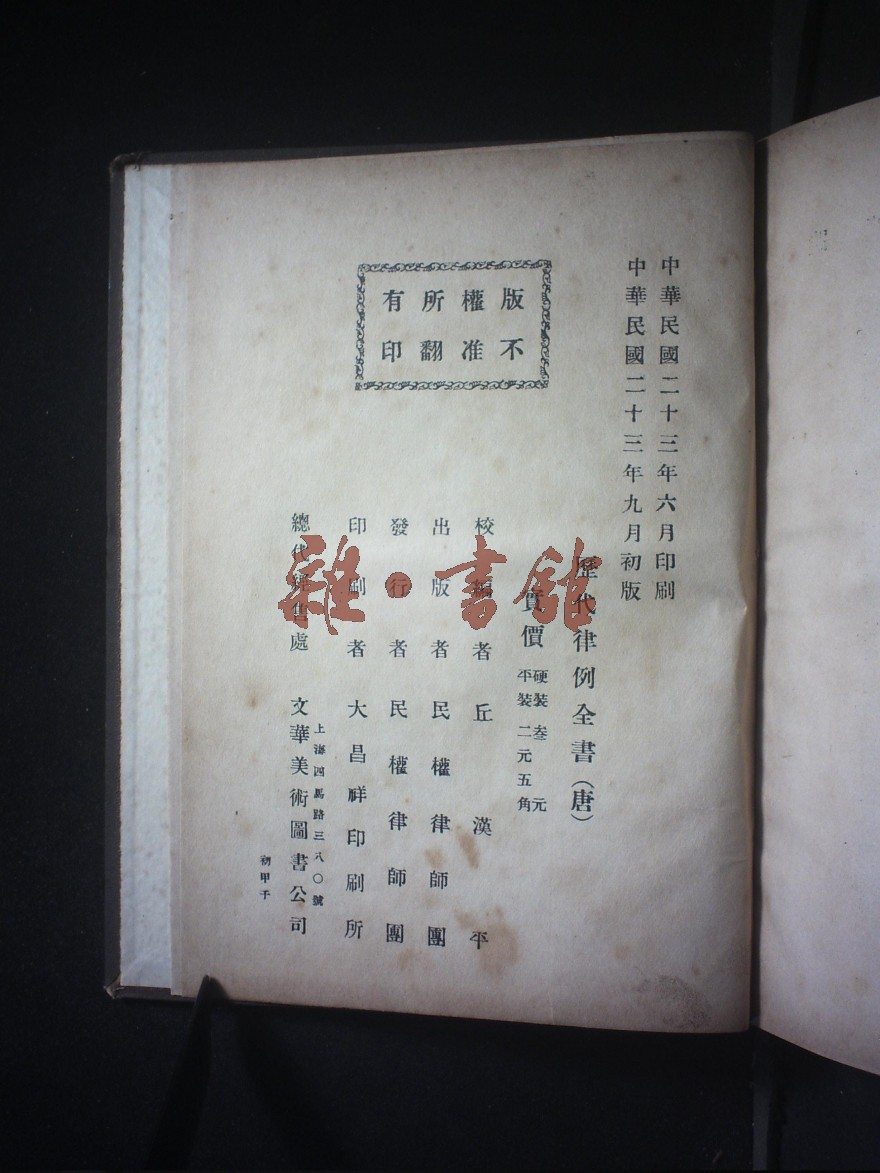 中華民國二十三年六月印刷
中華民國二十三年九月初版
歷代律例全書(唐)
實價 硬裝叁元
平裝二元五角
版權所有
不准翻印
校編者丘漢平
出版者民權律師團
發行者民權律師團
印刷者大昌祥印刷所
上海四馬路三八〇號
總代經售處 文華美術圖書公司
初甲千
雜·書館